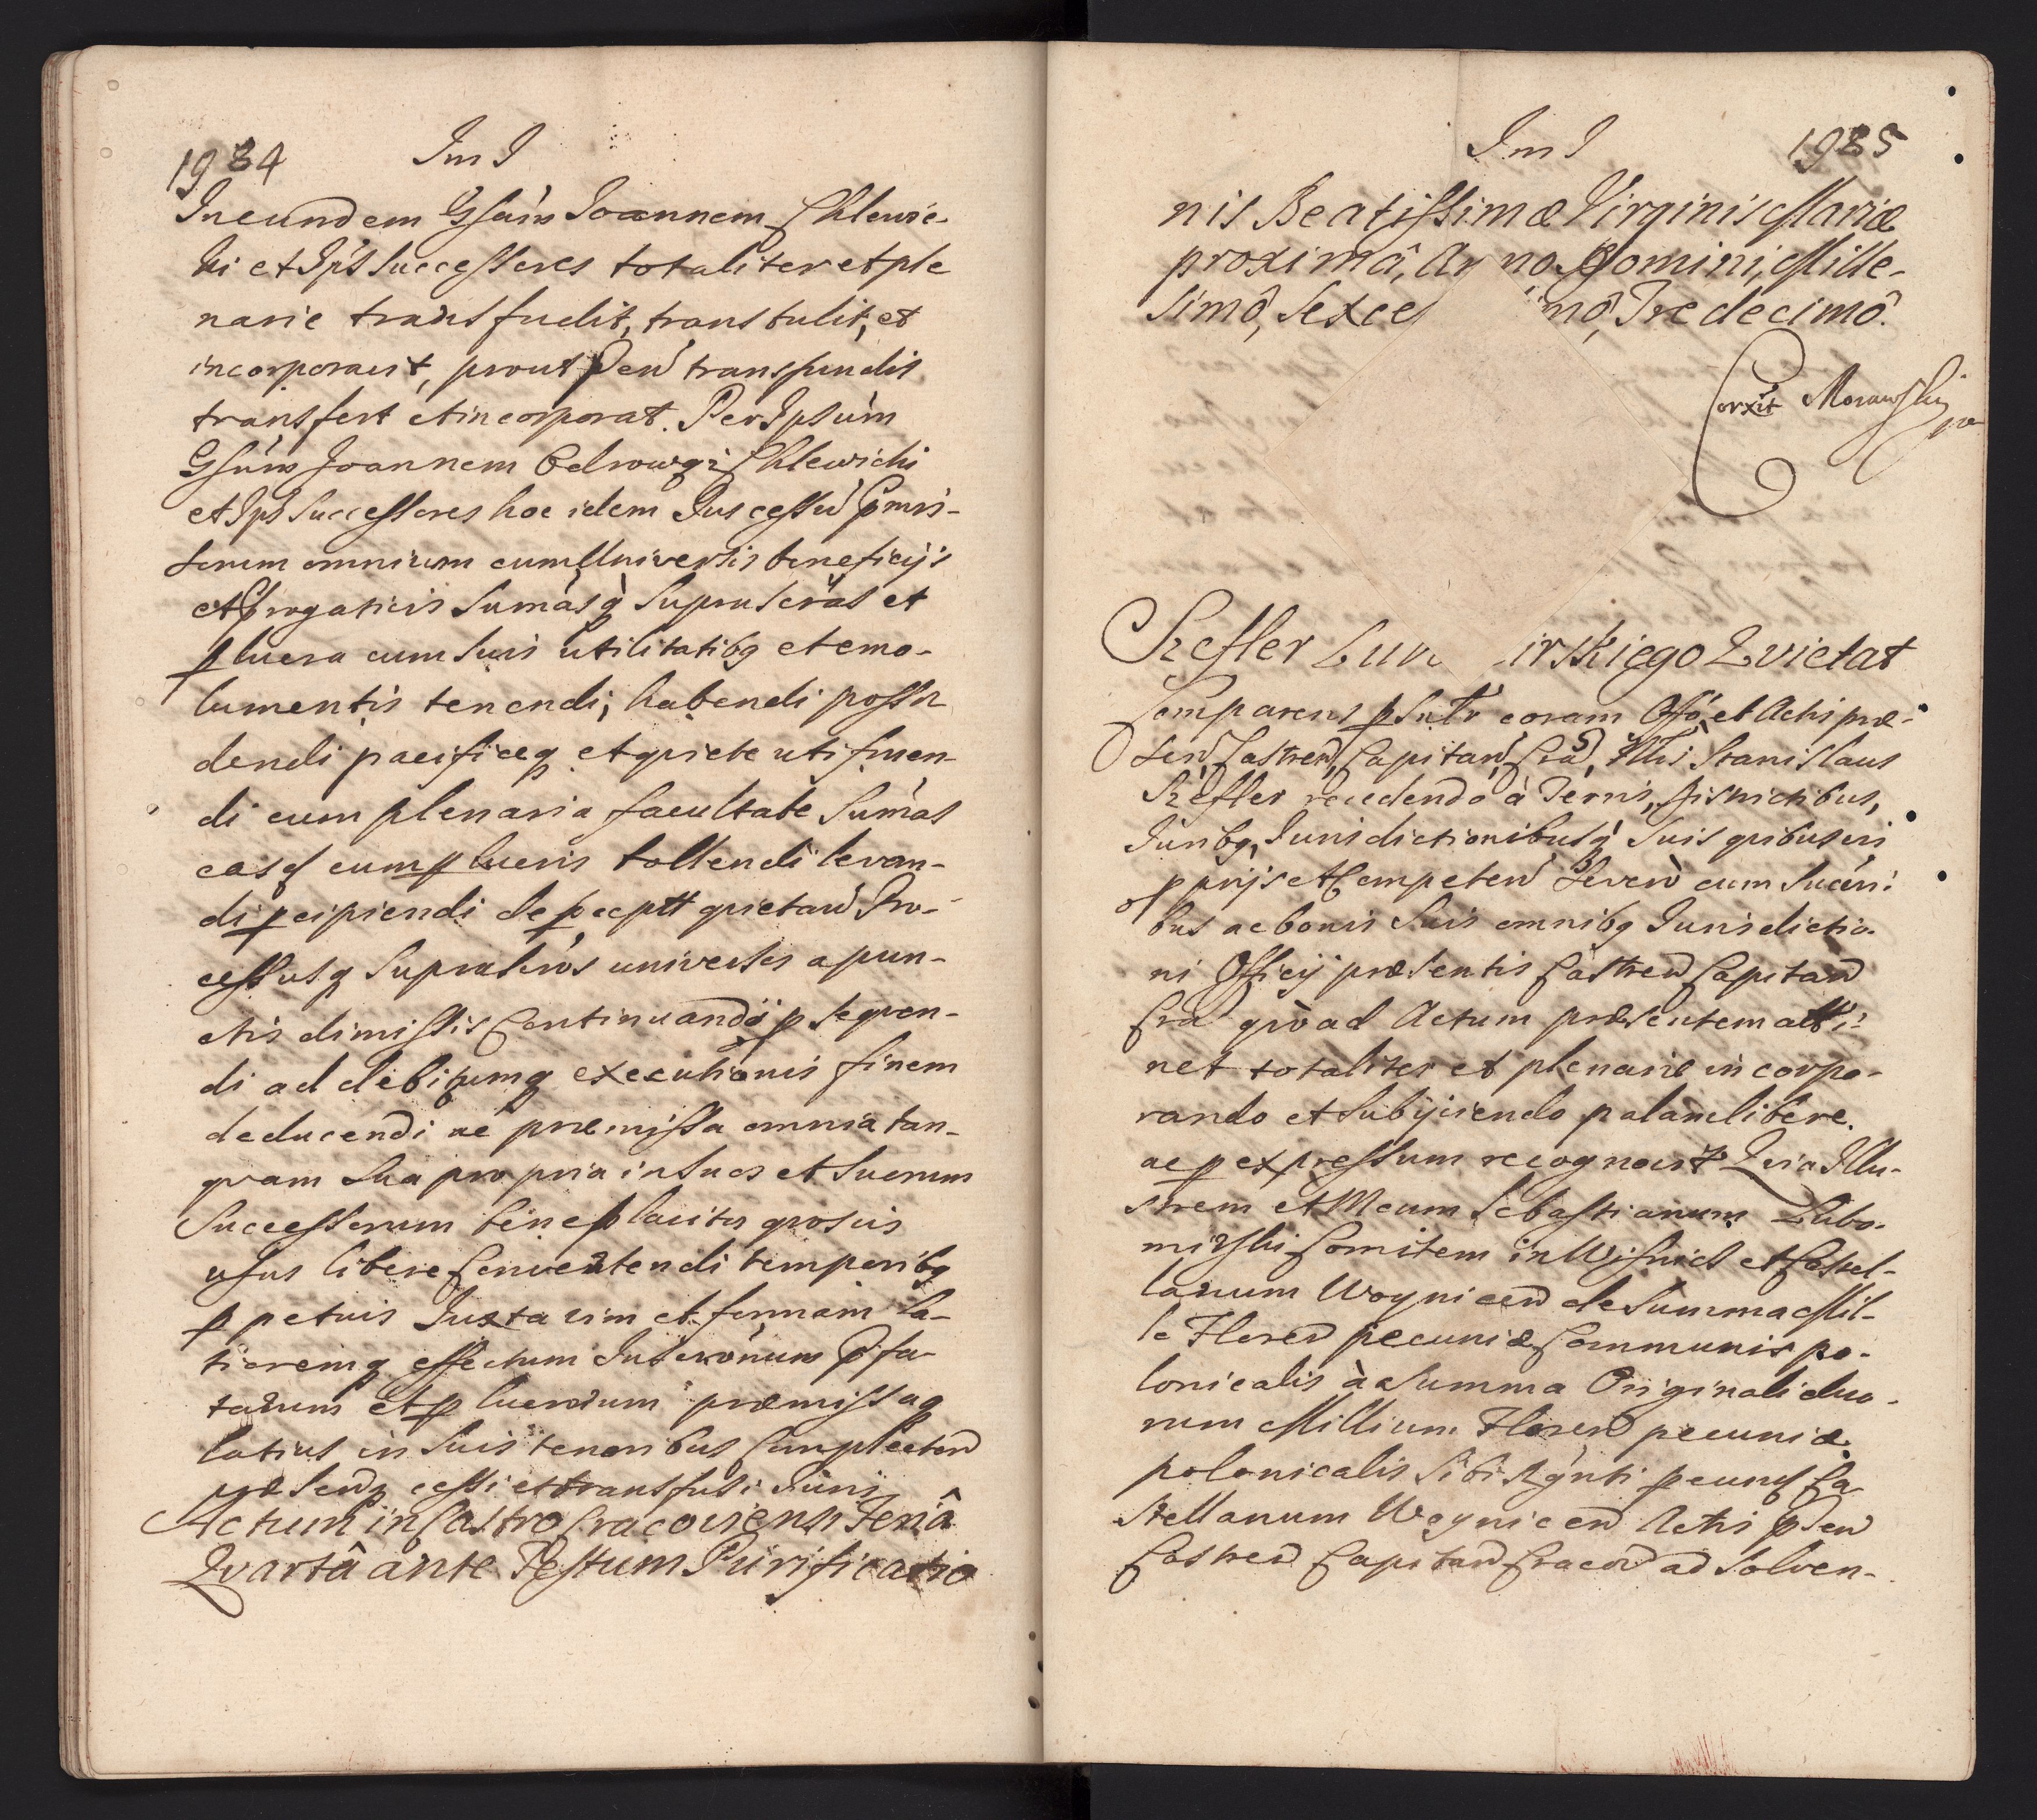 1984
Im I
In eundem Gsum Joannem Chlewic-
ki et Ips Successores totaliter et ple
narie transfudit, transtulit, et
incorporavit, prout Pen transfundit
transfert et incorporat. Per Ipsum
Gsum Joannem Chlewicki
et Ips Successores hoc idem Jus cessu Pmis-
sorum omnium cum Universis beneficijs
et Progativis Sumasq Suprascras et
p lucra cum Suis utilitatibq et emo-
lumentis tenendi, habendi possi
dendi pacificeq et quiete uti fruen-
di cum plenaria facultate Sumas
easq cum p lucris tollendi levan-
di pcipiendi de pceptt quietan Pro-
cessusq Suprascros universos a pun-
ctis dimissis Continuandi p sequen-
di ad debitumq executionis finem
deducendi ac præmissa omnia tan-
quam Sua propria in Suos et Suorum
Successorum beneplacitos quosvis
usus libere Convertendi temporibq
p petuis Juxta vim et formam la-
tioremq effectum Inscronum Pfa-
tarum et p lucrorum præmissaq
latius in Suis tenoribus Complecten
præsenq cessi et transfusi Juris
Actum in Castro Cracoviensi Feriâ
Qvartâ ante Festum Purificatio
Im I
1985
nis Beatissimæ Virginis Mariæ
proximâ, Anno Domini, Mille-
simô, Sexce imô, Tredecimô.
Corxit Morawski
Szefler Lu irskiego Qvietat
Comparens psntr coram Offo et Actis præ-
sen, Castren, Capitan, Cra, Stanislaus
Szefler recedendo à Terris, Districtibus,
Juribq, Jurisdictionibusq Suis quibusvi
p prijs et Competen cum Succri
bus ac bonis Suis omnibq Jurisdictio-
ni Officij præsentis Castren Capitan
Cra qvò ad Actum præsentem atti-
net totaliter et plenarie incorpo-
rando et Subijciendo palam libere
ac p expressum recognovit Qvia Illu-
strem et Mcum Sebastianum Lubo-
mirski Comitem in Wisnicz et Castel-
lanum Woynicen de Summa Mil-
le Floren pecuniæ Communis po-
lonicalis à Summa Originali duo-
rum Millium Floren pecuniæ
polonicalis Sibi Rgnti p eund Ca-
stellanum Woynicen Actis pSen
Castren Capitan Cracov ad Solven-